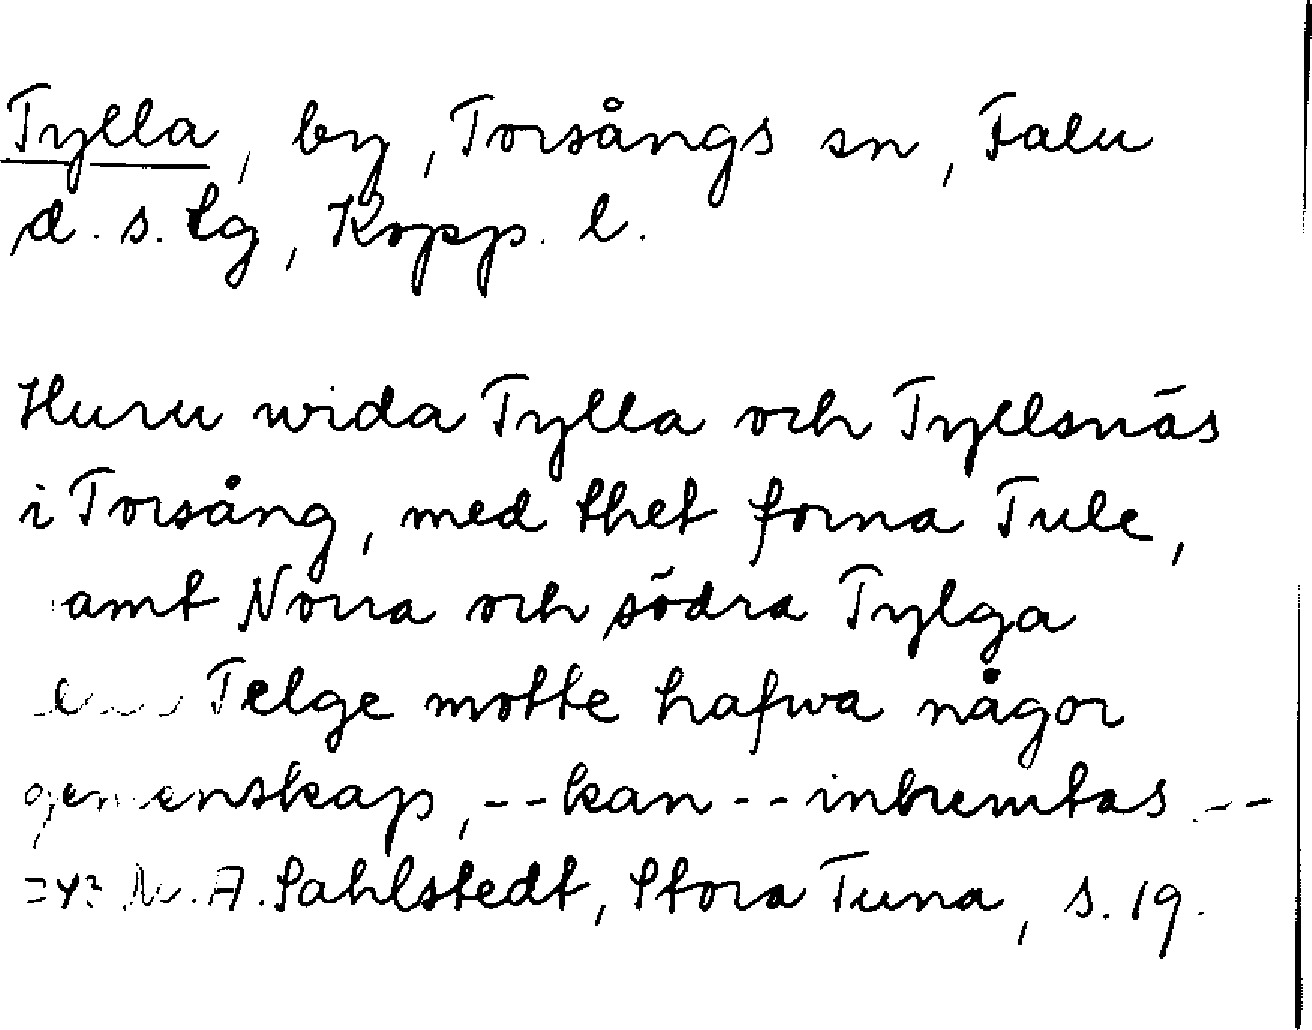 Tylla, by, Torsångs sn, Falu
d. s. lg, Kopp. l.
Huru wida Tylla och Tyllsnäs
i Torsång, med thet forna Tule,
amt Norra och södra Tylga
Telge motte hafwa någor
gemenskap, -- kan -- inhemtas --
A. Sahlstedt, Stora Tuna, s. 19.